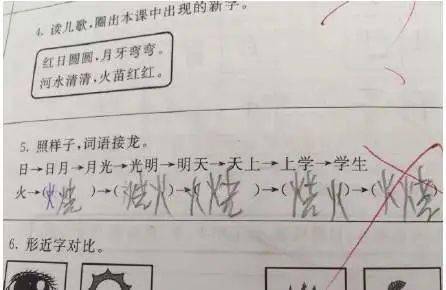 4. 读儿歌,圈出本课中出现的新字。
红日圆圆,月牙弯弯。
河水清清,火苗红红。
5. 照样子,词语接龙。
日→日月→月光→光明→明天→天上→上学→学生
火→(火烧)→(烧火)→火烧)→(烧火)→(火烧
6. 形近字对比。